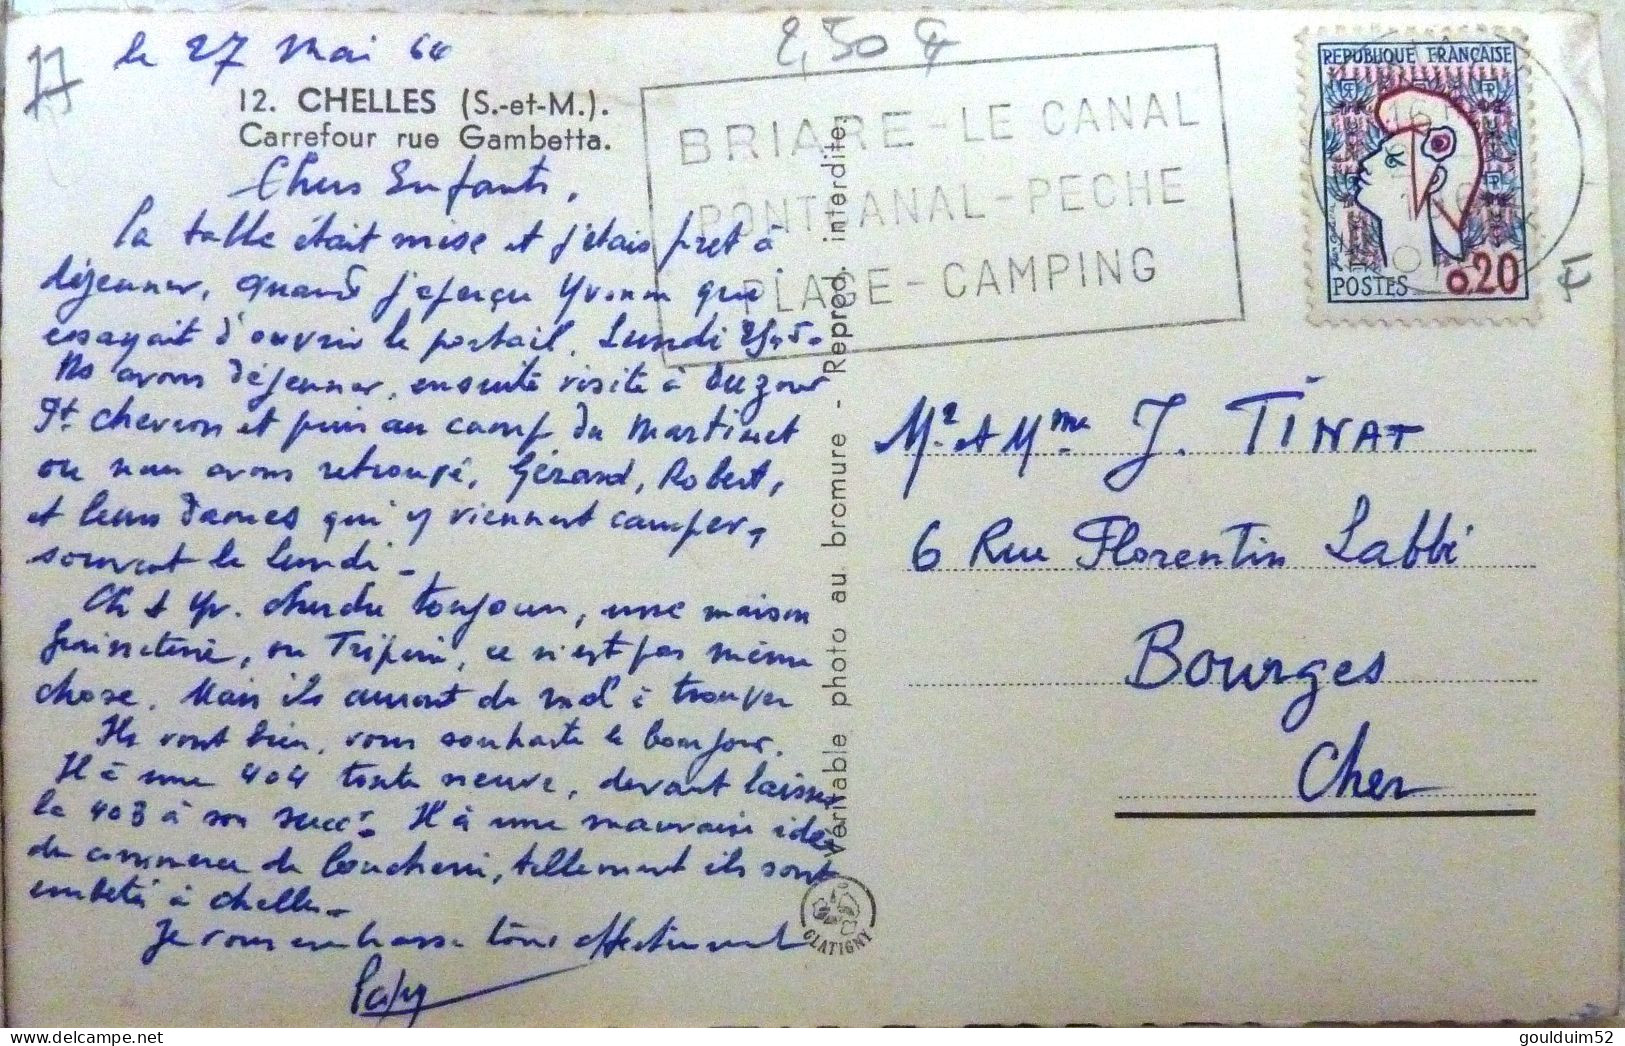 77
le 27 Mai 64
2,50 F
12. CHELLES (S.-et-M.).
Carrefour rue Gambetta.
Chers Enfants,
la table était mise et j'étais pret à
déjeuner, quand j'aperçu Yvonne que
essayait d'ouvrir le portail. Lundi 25-5-
Ns avons déjeuner, ensuite visite à Ouzouer
St. chevron et puis au camp du Martinet
ou nous avons retroupé, Gérard, Robert,
et leurs dames qui y viennent camper,
souvent le lundi -
Ch et Yv. cherche toujours, une maison
graineterie, ou Triperie, ce n'est pas même
chose. Mais ils auront du mal à trouver
Ils vont bien, vous souhaite le bonjour.
Il à une 404 toute neuve, devant laisser
la 403 à son succr. Il à une mauvaise idée
du commerce de boucherie, tellement ils sont
embêté à chelles -
Je vous embrasse tous affectueusement
Papy
Véritable photo au bromure - Reprod. interdite.
GLATIGNY
BRIARE - LE CANAL
PONT CANAL - PECHE
PLAGE - CAMPING
REPUBLIQUE FRANÇAISE
RF
POSTES 0,20
F
Mr. et Mme J. TINAT
6 Rue Florentin Labbé
Bourges
Cher
goulduim52